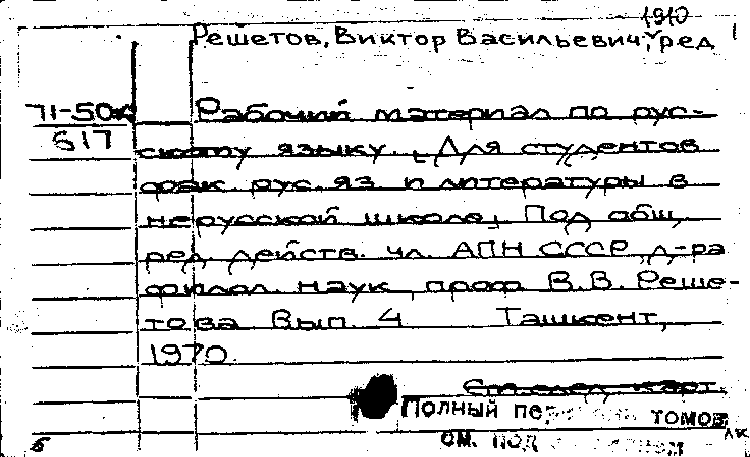 1910
Решетов, Виктор Васильевич, ред
71-50к
617
Рабочий материал по рус-
скому языку. [Для студентов
фак. рус. яз. и литературы в
нерусской школе], Под общ.
ред. действ. чл. АПН СССР, д-ра
филол. наук, проф. В.В. Реше-
това Вып. 4 Ташкент,
1970.
См.след. карт.
Полный томов
см. под